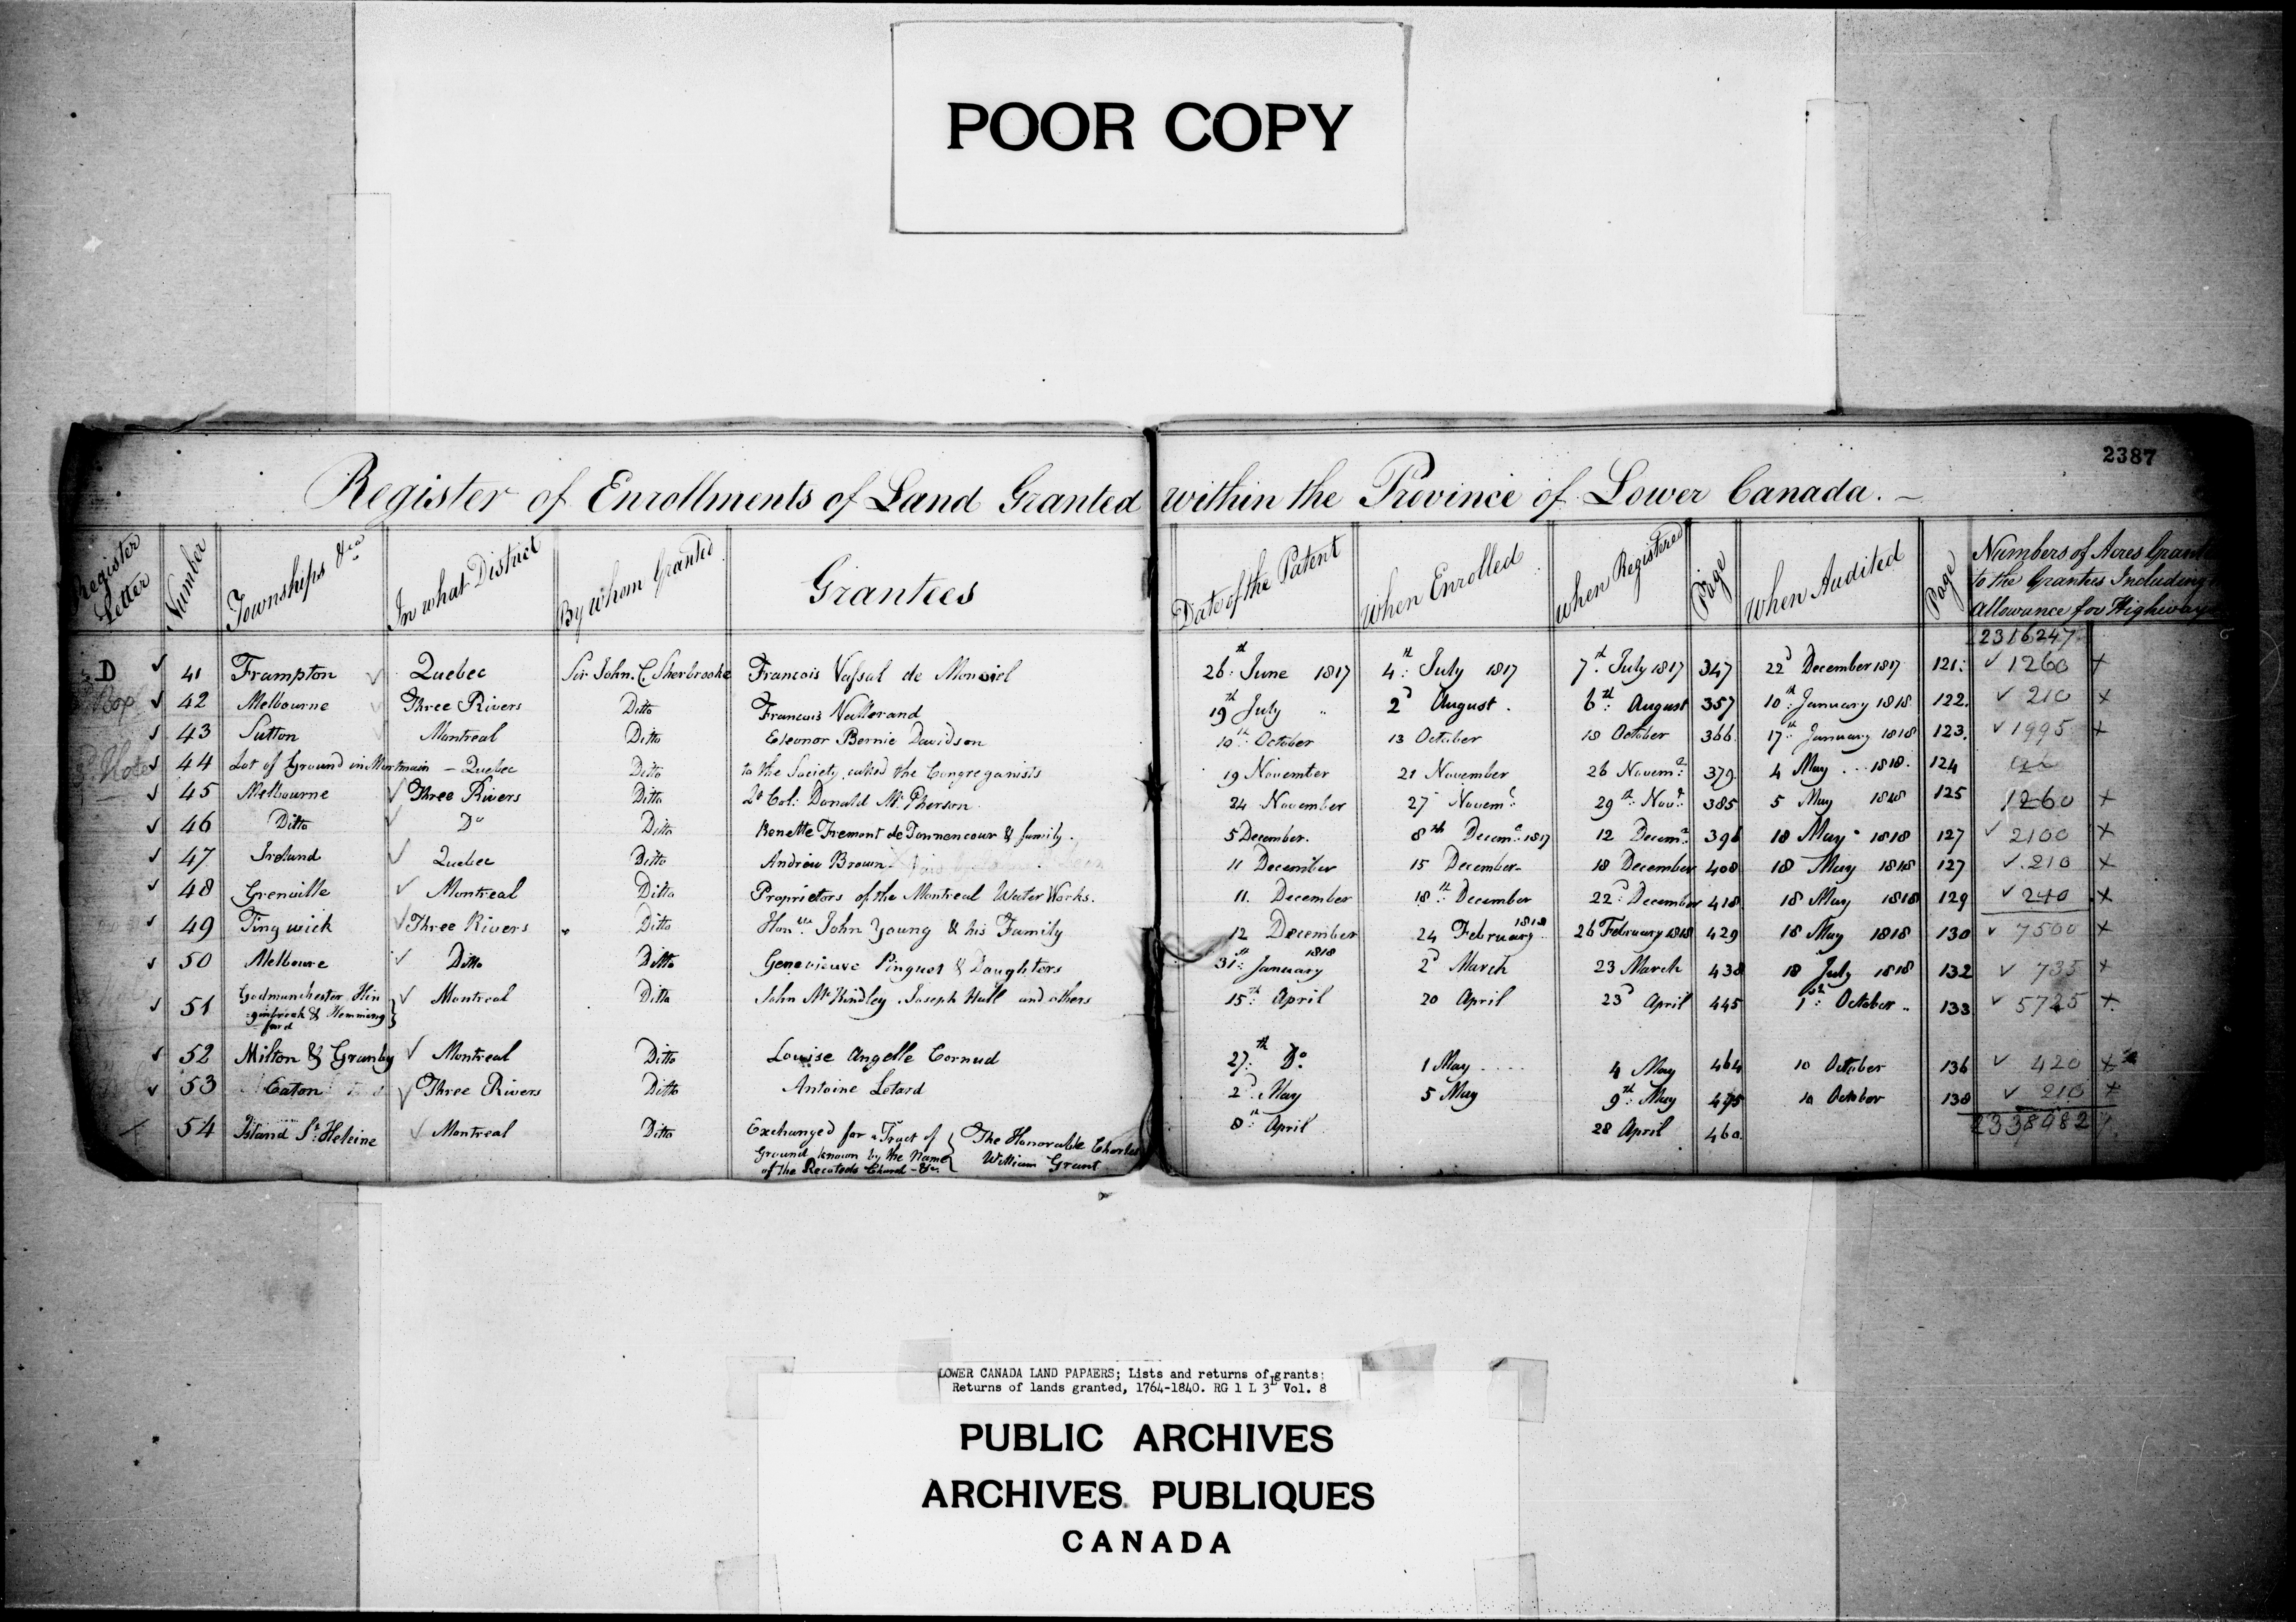 POOR COPY
2387
Register of Enrollments of Land Granted within the Province of Lower Canada. —
Register Letter | Number | Townships &ca | In what District | By whom Granted | Grantees | Date of the Patent | When Enrolled | When Registered | Page | When Audited | Page | Numbers of Acres Grant to the Grantees Including Allowance for Highway
2316247
D ✓ 41 Frampton ✓ Quebec Sir John. C. Sherbrooke Francois Vassal de Monviel 26th June 1817 4th July 1817 7th July 1817 347 22d December 1817 121 ✓ 1260 x
✓ 42 Melbourne ✓ Three Rivers Ditto Francois Vallerand 19th July " 2d August 6th August 357 10th January 1818 122 ✓ 210 x
✓ 43 Sutton ✓ Montreal Ditto Eleonor Bernie Davidson 10th October 13 October 18 October 366 17th January 1818 123 ✓ 1995 x
✓ 44 Lot of Ground in Montmain — Quebec Ditto to the Society called the Congreganists 19 November 21 November 26 Novemr 379 4 May 1818 124
✓ 45 Melbourne ✓ Three Rivers Ditto Lt Col: Donald Mc Pherson 24 November 27 Novemr 29th Novr 385 5 May 1818 125 1260 x
✓ 46 Ditto ✓ Do Ditto Benette Fremont de Tonnencour & family. 5 December. 8th Decemr 1817 12 Decemr 396 18 May 1818 127 ✓ 2100 x
✓ 47 Ireland ✓ Quebec Ditto Andrew Brown 11 December 15 December 18 December 408 18 May 1818 127 ✓ 210 x
✓ 48 Grenville ✓ Montreal Ditto Proprietors of the Montreal Water Works. 11 December 18th December 22d December 418 18 May 1818 129 ✓ 240 x
✓ 49 Tingwick ✓ Three Rivers Ditto Honble John Young & his Family 12 December 24 February 1818 26 February 1818 429 18 May 1818 130 ✓ 7500 x
✓ 50 Melboure ✓ Ditto Ditto Genevieuve Pinguet & Daughters 31st January 1818 2d March 23 March 438 18 July 1818 132 ✓ 735 x
✓ 51 Godmanchester Hin
ginbrook & Hemming
ford } ✓ Montreal Ditto John McKindley Joseph Hall and others 15th April 20 April 23d April 445 1st October 133 ✓ 5725 x
✓ 52 Milton & Granby ✓ Montreal Ditto Louise Angelle Cornud 27th Do 1 May 4 May 464 10 October 136 ✓ 420 x
✓ 53 Eaton ✓ Three Rivers Ditto Antoine Letard 2d May 5 May 9th May 475 10 October 138 ✓ 210 x
54 Island St Heleine ✓ Montreal Ditto Exchanged for a Tract of
Ground known by the Name
of the Recoteds Church - &c. } The Honorable Charles
William Grant 8th April 28 April 460
2338982
LOWER CANADA LAND PAPAERS; Lists and returns of grants:
Returns of lands granted, 1764-1840. RG 1 L 3L Vol. 8
PUBLIC ARCHIVES
ARCHIVES PUBLIQUES
CANADA